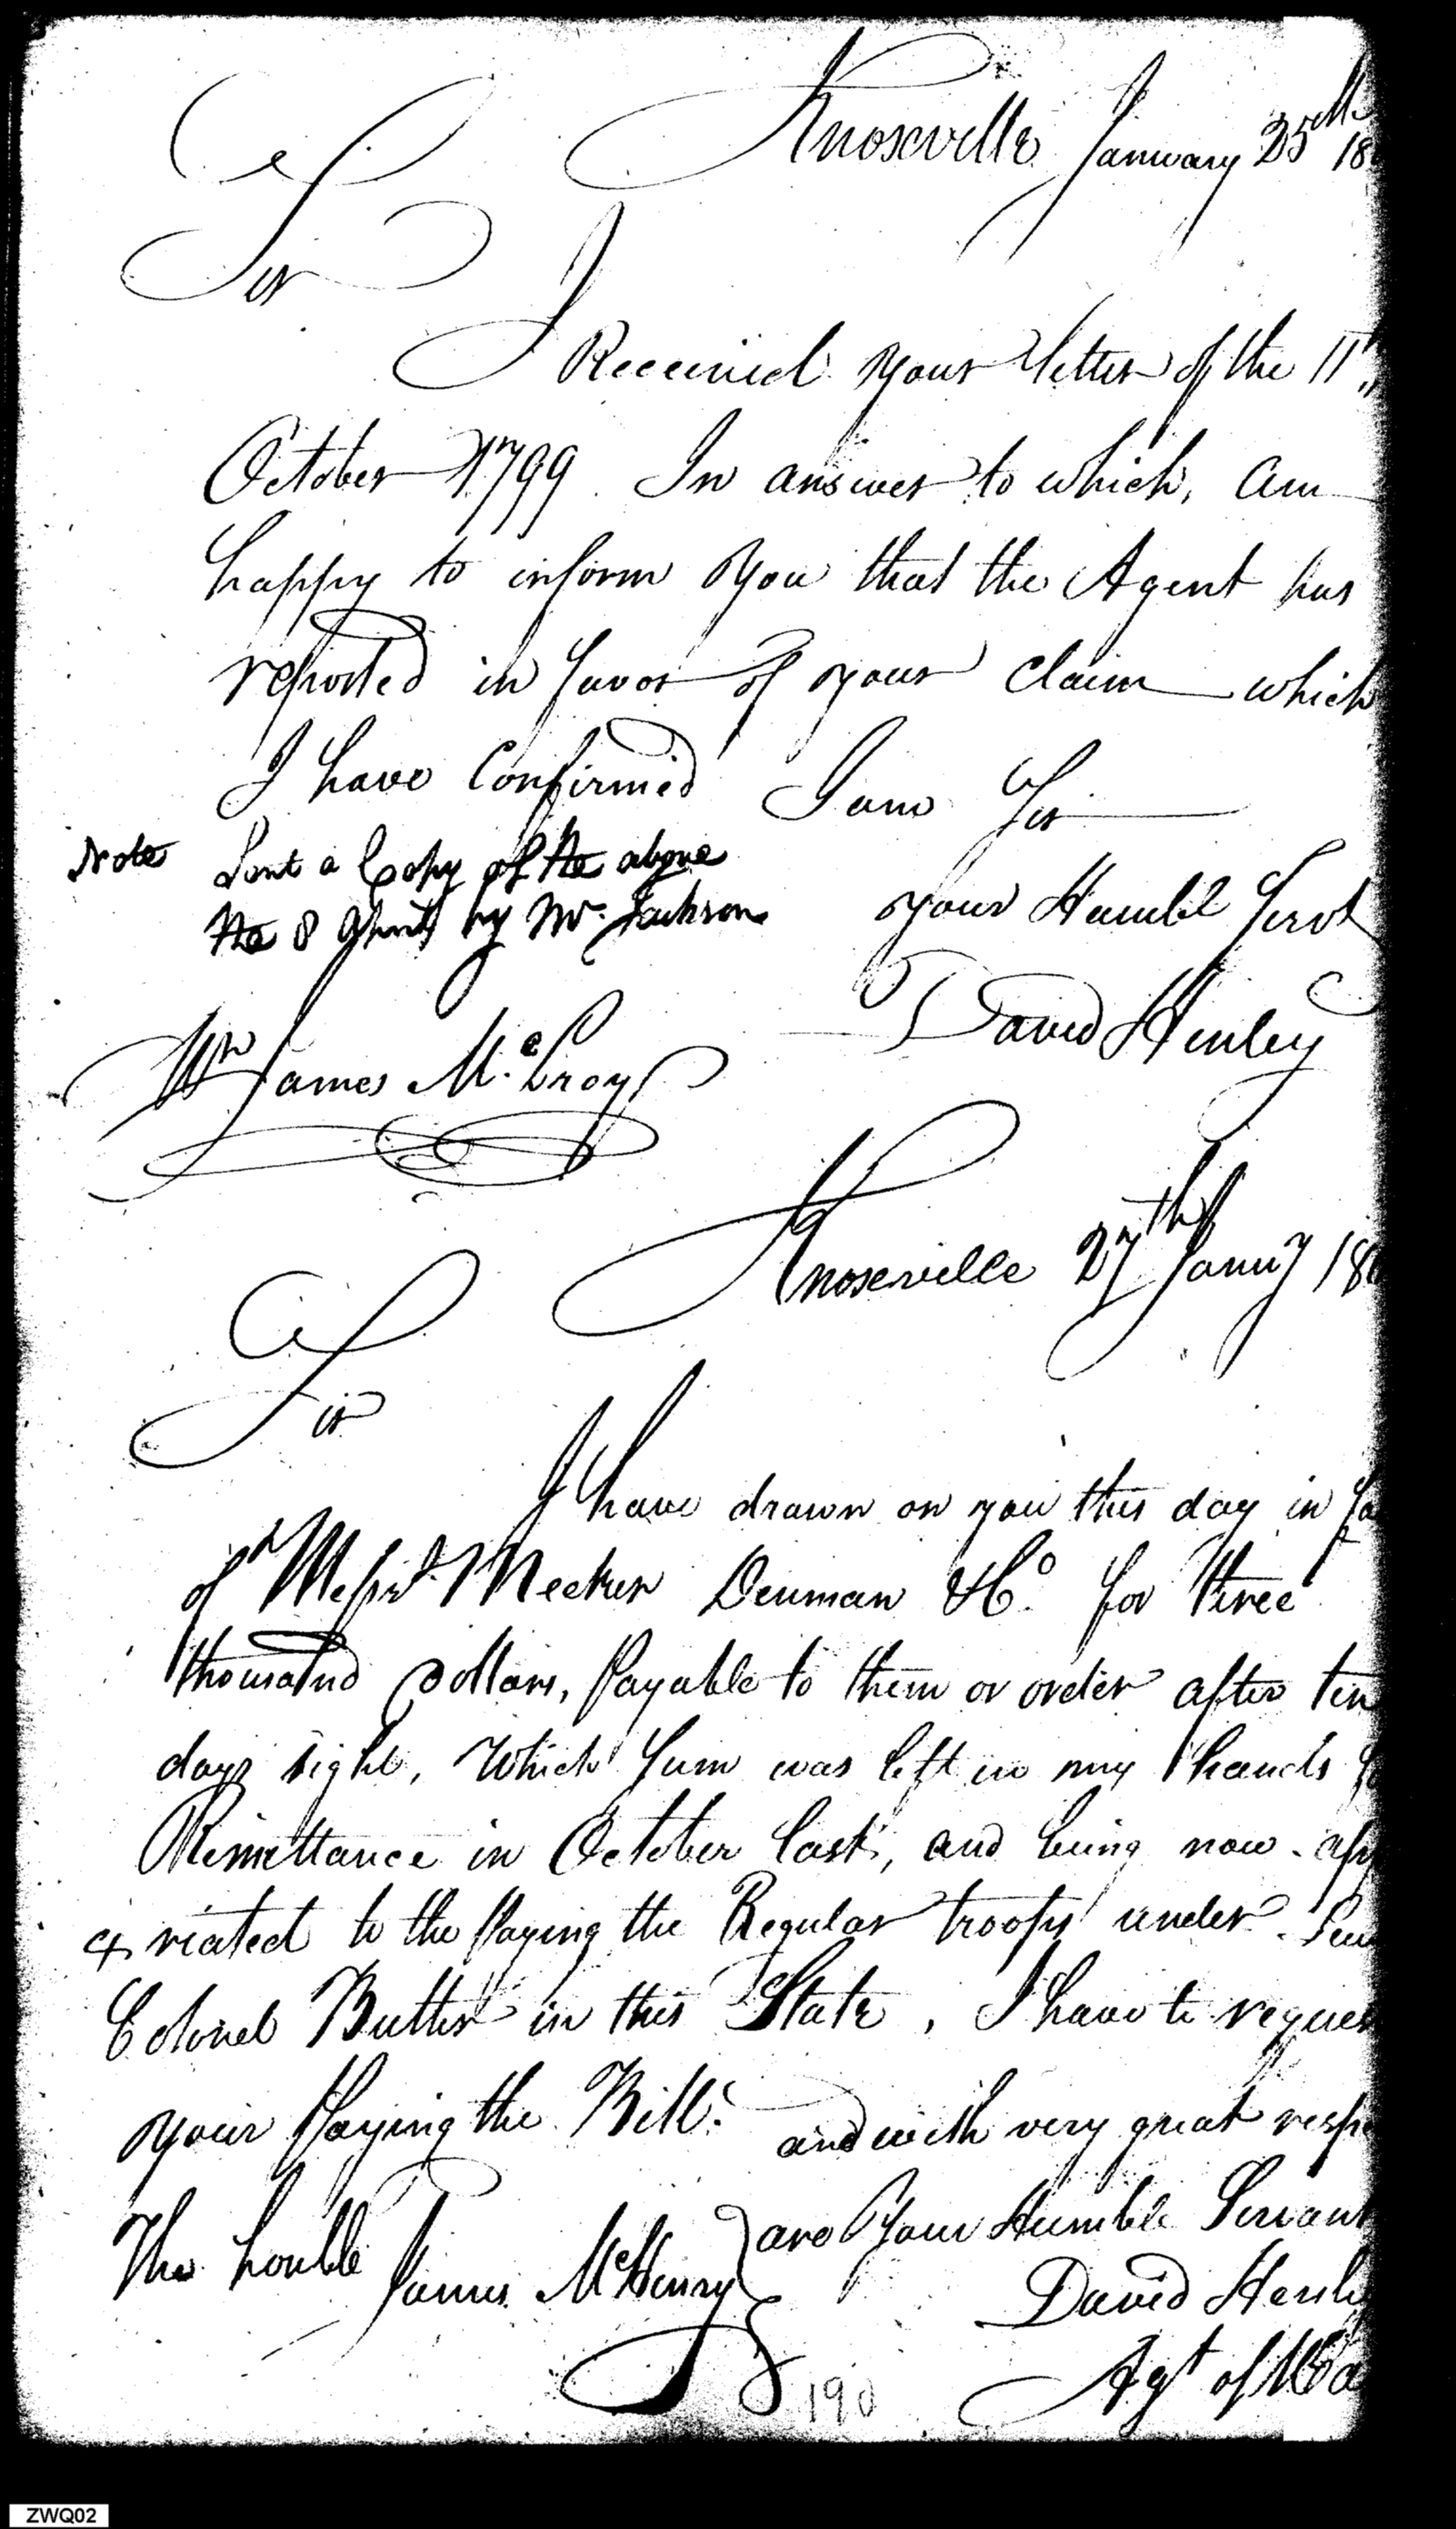 Knoxville January 25th 18
Sir
I Received your letter of the 11th
October 1799 In answer to which, am
happy to inform you that the Agent has
reported in favor of your claim which
I have Confirmed I am Sir
Note Sent a Copy of the above
the 8 by Mr. Jackson
your Humbl Servt
David Henley
Mr James
Knoxville 27th Jany 18
Sir
I have drawn on you this day in fa
of Messrs. Meeker Denman & Co. for three
thousand Dollars, Payable to them or order after ten
days sight, Which Sum was left in my hands fo
Remittance in October last, and being now app
riated to the Paying the Regular troops under
Colonel Butler in this State, I have to reques
your Paying the Bill. and with very great respe
are Your Humble Servant
The honble James McHenry
David Henle
Agt of Wa
190
ZWQ02